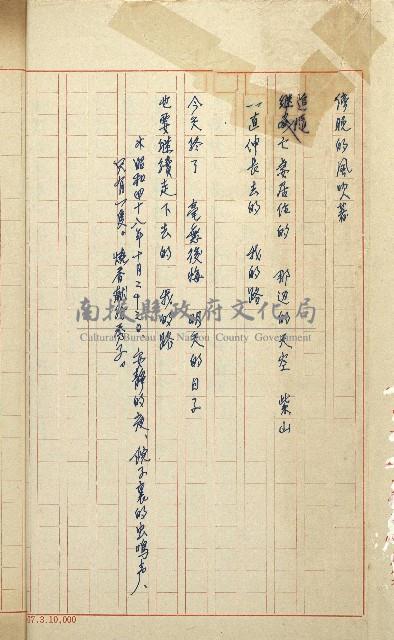 傍晚的風吹著
追隨
繼亡妻居住的 那边的天空 柴山
一直伸長去的 我的路
今天終了 毫無後悔 明天的日子
也要继續走下去的 我的路
昭和四十八年十月二十三日 寂靜的夜、院子裏的虫鳴声、
只有一隻。燒香献給秀子。
南投縣政府文化局
Cultural Bureau of Nantou County Government
7.3.10,000